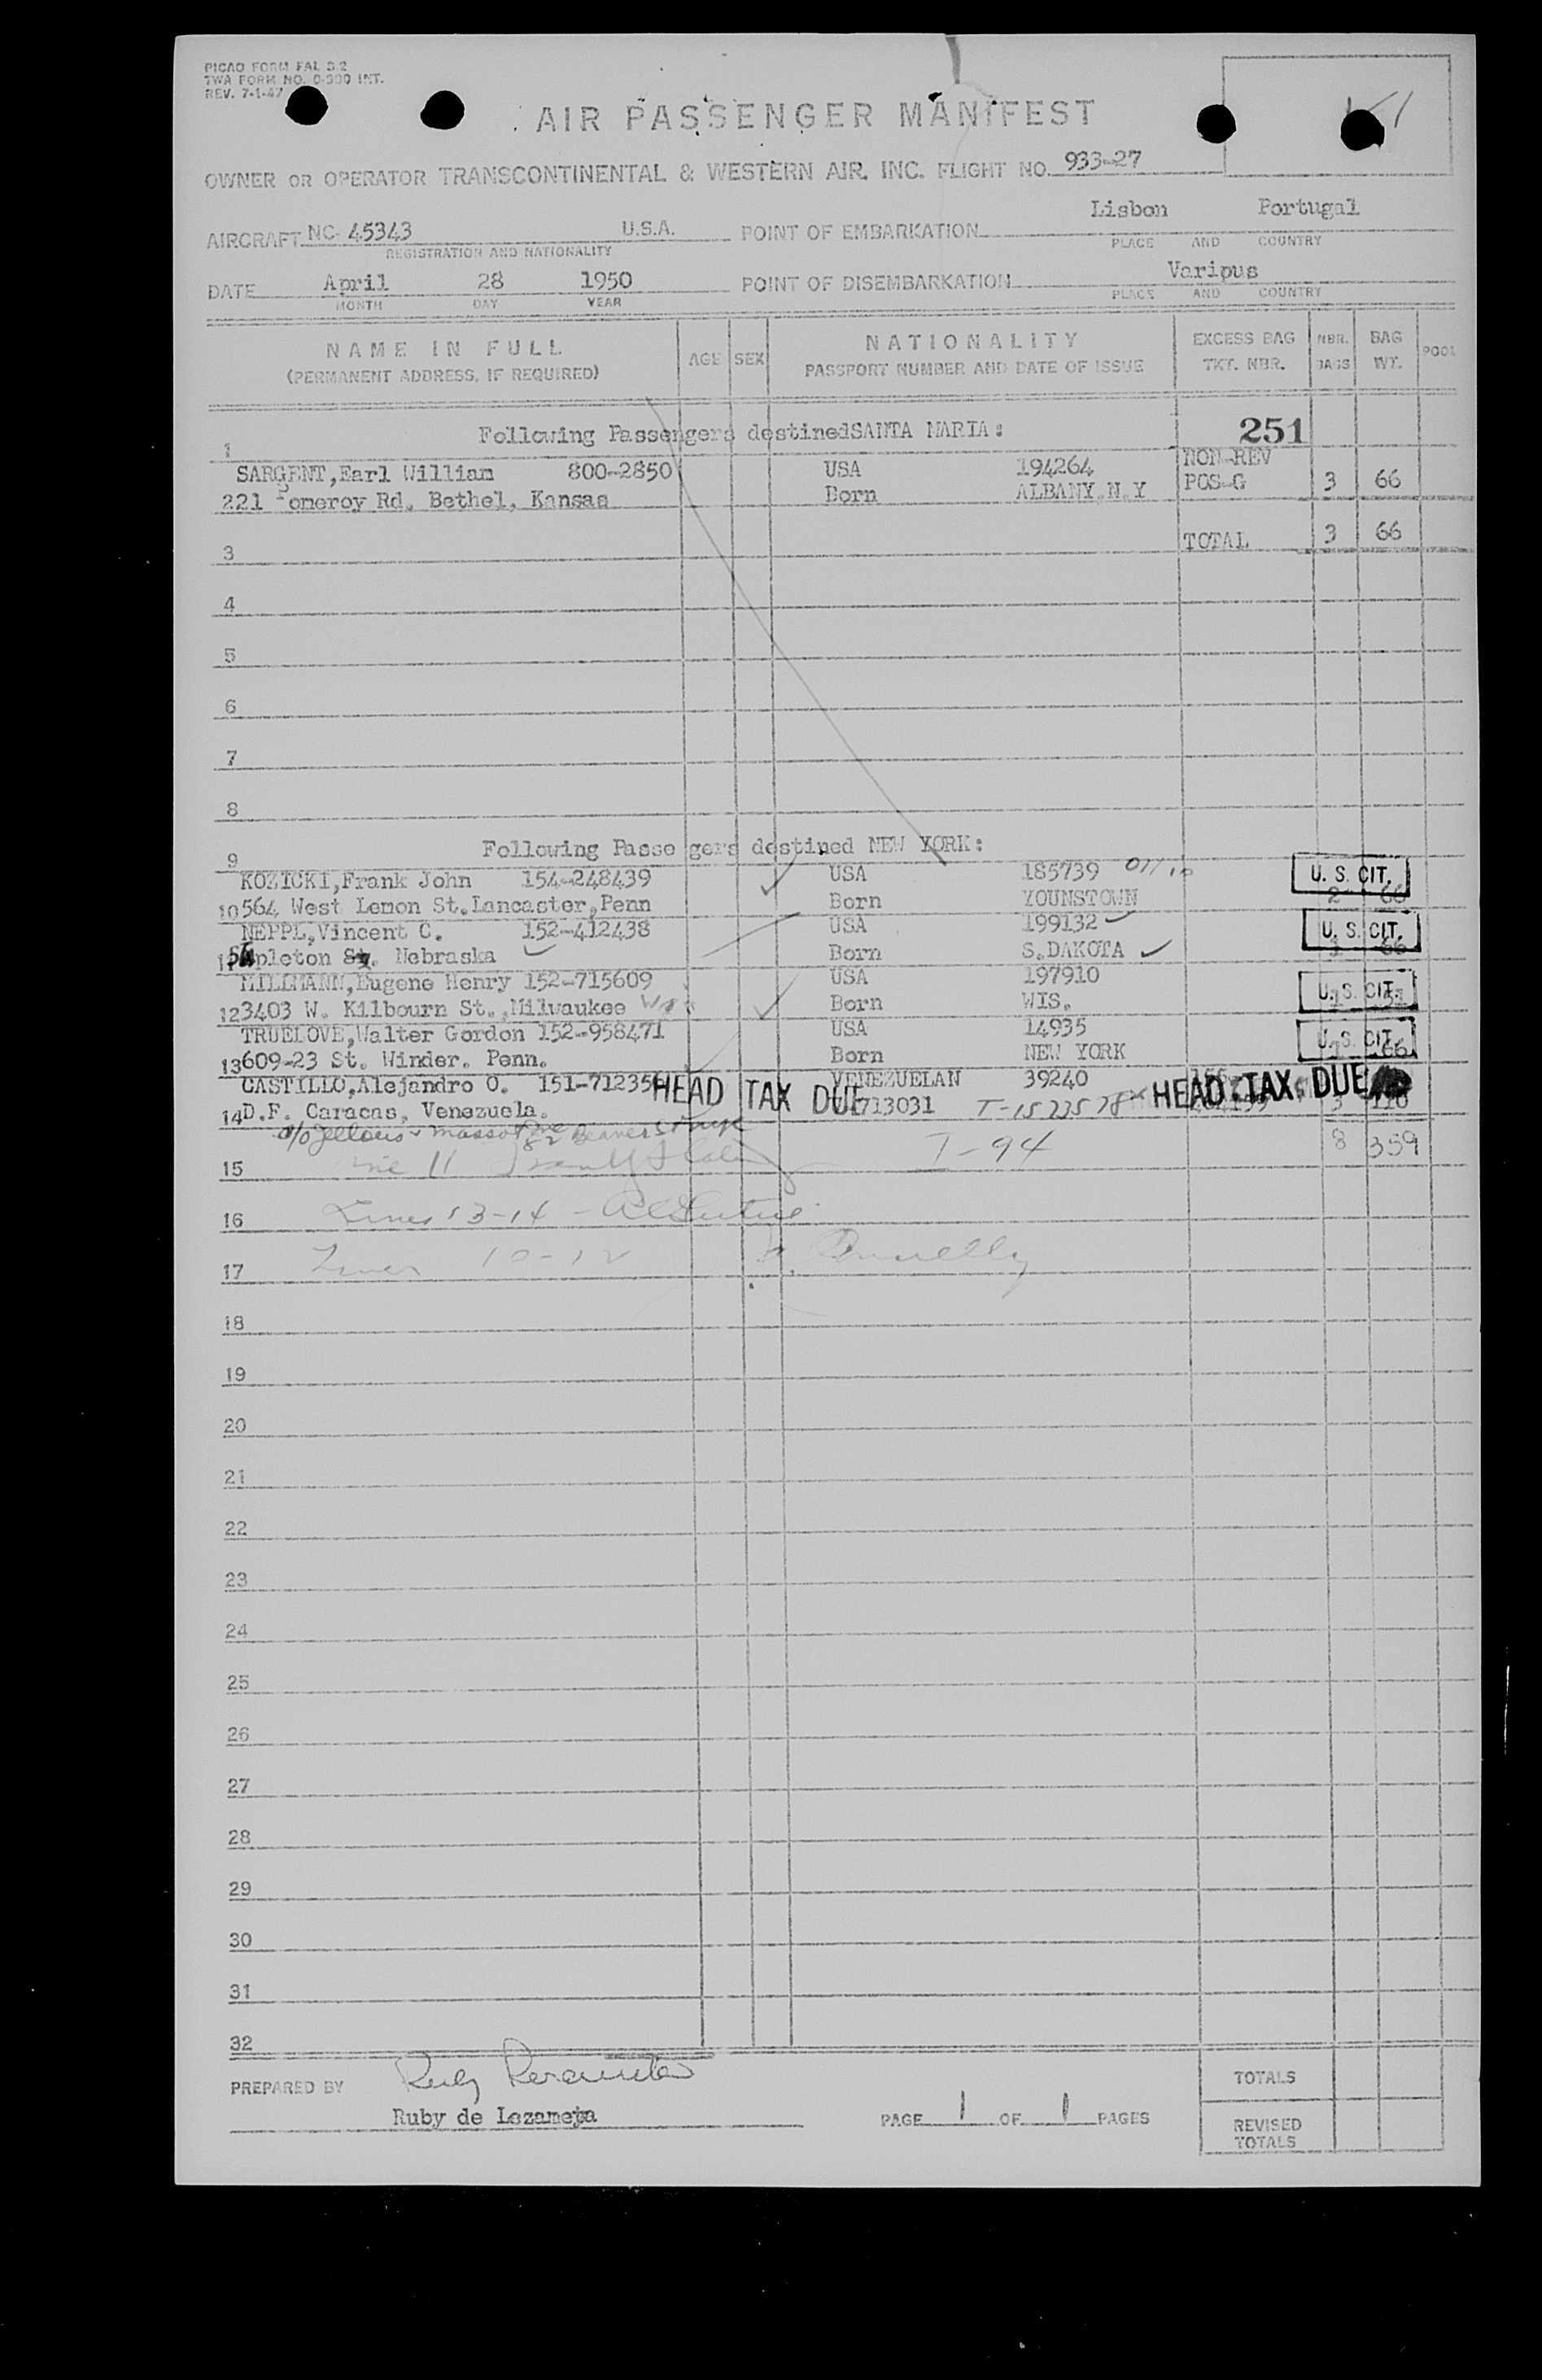 PICAO FORM FAL S 2
TWA FORM NO. 0-300 INT.
REV. 7-1-47
AIR PASSENGER MANIFEST
OWNER OR OPERATOR TRANSCONTINENTAL & WESTERN AIR. INC. FLIGHT NO. 933-27
Lisbon Portugal
AIRCRAFT NC- 45343 U.S.A. POINT OF EMBARKATION
REGISTRATION AND NATIONALITY PLACE AND COUNTRY
DATE April 28 1950 POINT OF DISEMBARKATION Varipus
MONTH DAY YEAR PLACE AND COUNTRY
NAME IN FULL AGE SEX NATIONALITY EXCESS BAG NBR. BAG POOL
(PERMANENT ADDRESS, IF REQUIRED) PASSPORT NUMBER AND DATE OF ISSUE TKT. NBR. BAGS WT.
1 Following Passengers destinedSANTA MARIA: 251
SARGENT,Earl William 800-2850 USA 194264 NON-REV
221 Pomeroy Rd. Bethel, Kansas Born ALBANY.N.Y POS-G 3 66
3 TOTAL 3 66
4
5
6
7
8
9 Following Passe gers destined NEW YORK:
KOZICKI,Frank John 154-248439 USA 185739 U. S. CIT.
10 564 West Lemon St.Lancaster,Penn Born YOUNSTOWN 2 66
NEPPL,Vincent C. 152-412438 USA 199132 U. S. CIT.
11 pleton Nebraska Born S.DAKOTA 66
MILLMANN,Eugene Henry 152-715609 USA 197910 U. S. CIT.
12 3403 W. Kilbourn St.,Milwaukee Wis Born WIS.
TRUELOVE,Walter Gordon 152-958471 USA 14935 U. S. CIT.
13 609-23 St. Winder. Penn. Born NEW YORK 66
CASTILLO,Alejandro O. 151-71235 HEAD TAX DUE VENEZUELAN 39240 HEAD TAX DUE
14 D.F. Caracas, Venezuela. 713031 3 110
15 Line 11 I-94 8 359
16 Lines 13-14 -
17 Lines 10-12 Donnelly
18
19
20
21
22
23
24
25
26
27
28
29
30
31
32
PREPARED BY TOTALS
Ruby de Lozameta PAGE 1 OF 1 PAGES
REVISED
TOTALS